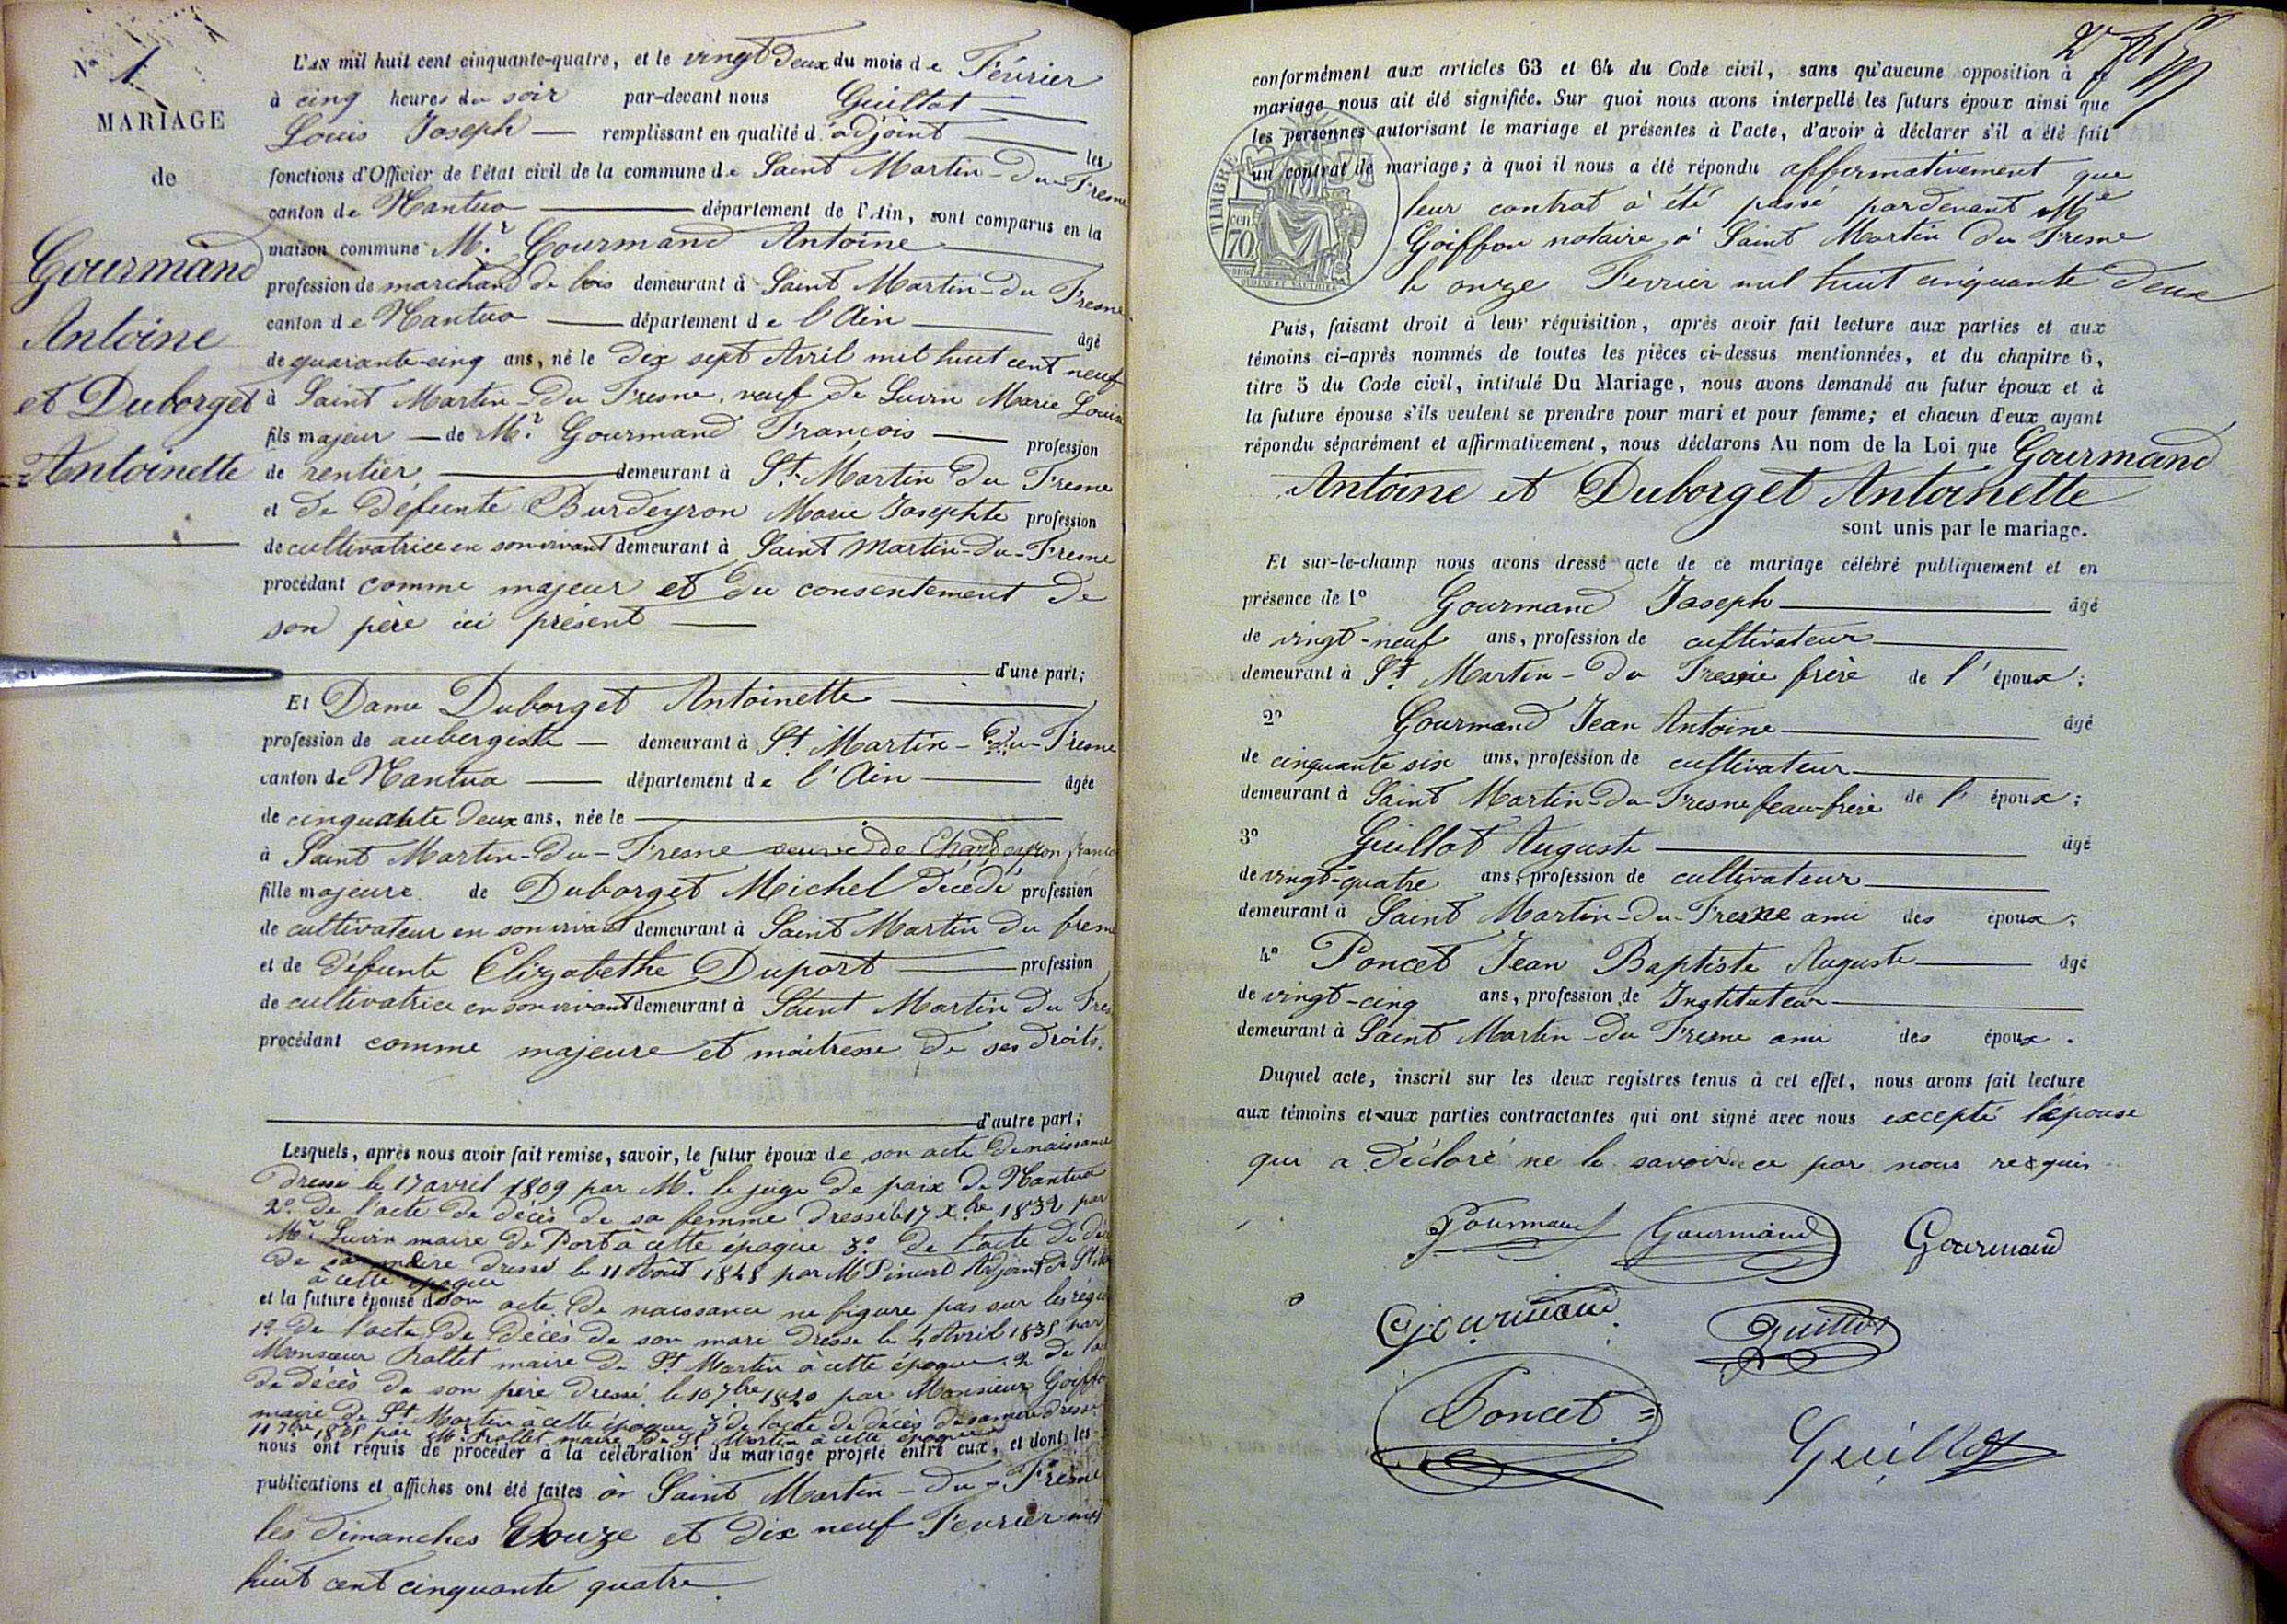 N° 1
MARIAGE
de
Gourmand
Antoine
et Duborget
Antoinette
L'AN mil huit cent cinquante-quatre, et le vingt Deux du mois de Février
à cinq heures du soir par-devant nous Guillot
Louis Joseph — remplissant en qualité d'adjoint les
fonctions d'Officier de l'état civil de la commune de Saint Martin-Du-Fresne
canton de Nantua département de l'Ain, sont comparus en la
maison commune Mr. Gourmand Antoine
profession de marchand de bois demeurant à Saint Martin-Du Fresne
canton de Nantua département de l'Ain âgé
de quarante-cinq ans, né le Dix sept Avril mil huit cent neuf
à Saint Martin-Du Fresne, veuf de Luvin Marie Louise
fils majeur — de Mr. Gourmand François — profession
de rentier, demeurant à St. Martin Du Fresne
et De Défunte Burdeyron Marie Josephte profession
de cultivatrice en son vivant demeurant à Saint Martin-Du-Fresne
procédant comme majeur et Du consentement De
son père ici présent
d'une part;
Et Dame Duborget Antoinette
profession de aubergiste — demeurant à St. Martin-Du-Fresne
canton de Nantua département de l'Ain âgée
de cinquante Deux ans, née le
à Saint Martin-Du-Fresne veuve de Chardeyron
fille majeure de Duborget Michel Décédé profession
de cultivateur en son vivant demeurant à Saint Martin Du fresn
et de Défunte Elizabethe Duport profession
de cultivatrice en son vivant demeurant à Saint Martin Du Fres
procédant comme majeure et maitresse De ses Droits.
d'autre part;
Lesquels, après nous avoir fait remise, savoir, le futur époux de son acte De naissance
Dressé le 17 avril 1809 par Mr. le juge De paix De Nantua
2° De l'acte De décès De sa femme Dressé le 17 Xbre 1832 par
Mr Luvin maire De Port à cette époque 3° De l'acte De dé
De sa mère Dressé le 11 Août 1848 par M Pinard Adjoint De St
à cette époque
et la future épouse d son acte De naissance ne figure pas sur les
1° De l'acte De Décès De son mari Dressé le 4 Avril 1838 par
Monsieur Rollet maire De St Martin à cette époque. 2 De l'a
De Décès De son père Dressé le 10 7bre 1840 par Monsieur Goiffo
maire De St Martin à cette époque 3 De l'acte De décès De sa mère Dressé
11 7bre 1838 par Mr Rollet maire De St Martin à cette époque
nous ont requis de procéder à la célébration du mariage projeté entre eux, et dont les
publications et affiches ont été faites à Saint Martin-Du-Fresne
les Dimanches Douze et Dix neuf Février mil
huit cent cinquante quatre
conformément aux articles 63 et 64 du Code civil, sans qu'aucune opposition à ce
mariage nous ait été signifiée. Sur quoi nous avons interpellé les futurs époux ainsi que
les personnes autorisant le mariage et présentes à l'acte, d'avoir à déclarer s'il a été fait
un contrat de mariage; à quoi il nous a été répondu affirmativement que
leur contrat a été passé pardevant Me
Goiffon notaire à Saint Martin Du Fresne
le onze Fevrier mil huit cinquante Deux
TIMBRE
cen 70
Puis, faisant droit à leur réquisition, après avoir fait lecture aux parties et aux
témoins ci-après nommés de toutes les pièces ci-dessus mentionnées, et du chapitre 6,
titre 5 du Code civil, intitulé Du Mariage, nous avons demandé au futur époux et à
la future épouse s'ils veulent se prendre pour mari et pour femme; et chacun d'eux ayant
répondu séparément et affirmativement, nous déclarons Au nom de la Loi que Gourmand
Antoine et Duborget Antoinette
sont unis par le mariage.
Et sur-le-champ nous avons dressé acte de ce mariage célébré publiquement et en
présence de 1° Gourmand Joseph âgé
de vingt-neuf ans, profession de cultivateur
demeurant à St. Martin-Du Fresne frère de l'époux;
2° Gourmand Jean Antoine âgé
de cinquante six ans, profession de cultivateur
demeurant à Saint Martin-Du-Fresne beau-frère de l'époux;
3° Guillot Auguste âgé
de vingt-quatre ans, profession de cultivateur
demeurant à Saint Martin-Du-Fresne ami des époux;
4° Poncet Jean Baptiste Auguste âgé
de vingt-cinq ans, profession de Instituteur
demeurant à Saint Martin-Du Fresne ami des époux.
Duquel acte, inscrit sur les deux registres tenus à cet effet, nous avons fait lecture
aux témoins et aux parties contractantes qui ont signé avec nous excepté l'épouse
qui a Déclaré ne le savoir de ce par nous requis
Gourmand Gourmand Gourmand
Gourmand Guillot
Poncet Guillot